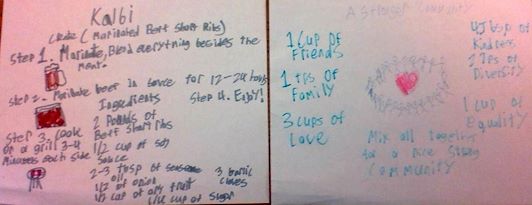 Kalbi
(Marinated Beff Short Ribs)
Step 1. Marinate, Blend everything besides the
meat.
Step 2. Marinate beef in sauce for 12-24 hours
Ingredients
Step 4. Enjoy!
2 Pounds of
Beff Short ribs
Step 3. Cook
on a grill 3-4
Minutes each side
1/2 cup of soy
sauce
2-3 tbsp of
oil
3 garlic
cloves
1/2 of onion
1/2 cup of any fruit
1/4 cup of sugar
A Stronger Community
1 Cup of
Friends
1 Tbs of
Family
3 cups of
Love
4 Tbsp of
Kindness
2 Tbs of
Diversity
1 cup of
Equality
Mix all together
for a nice strong
Community